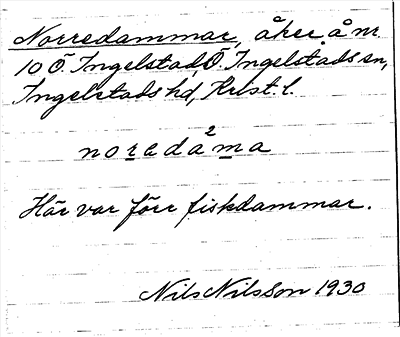 Norredammar, åker å nr.
10 Ö. Ingelstad, Ö. Ingelstads sn,
Ingelstads hd, Krist. l.
noredàma
2
Här var förr fiskdammar.
Nils Nilsson 1930